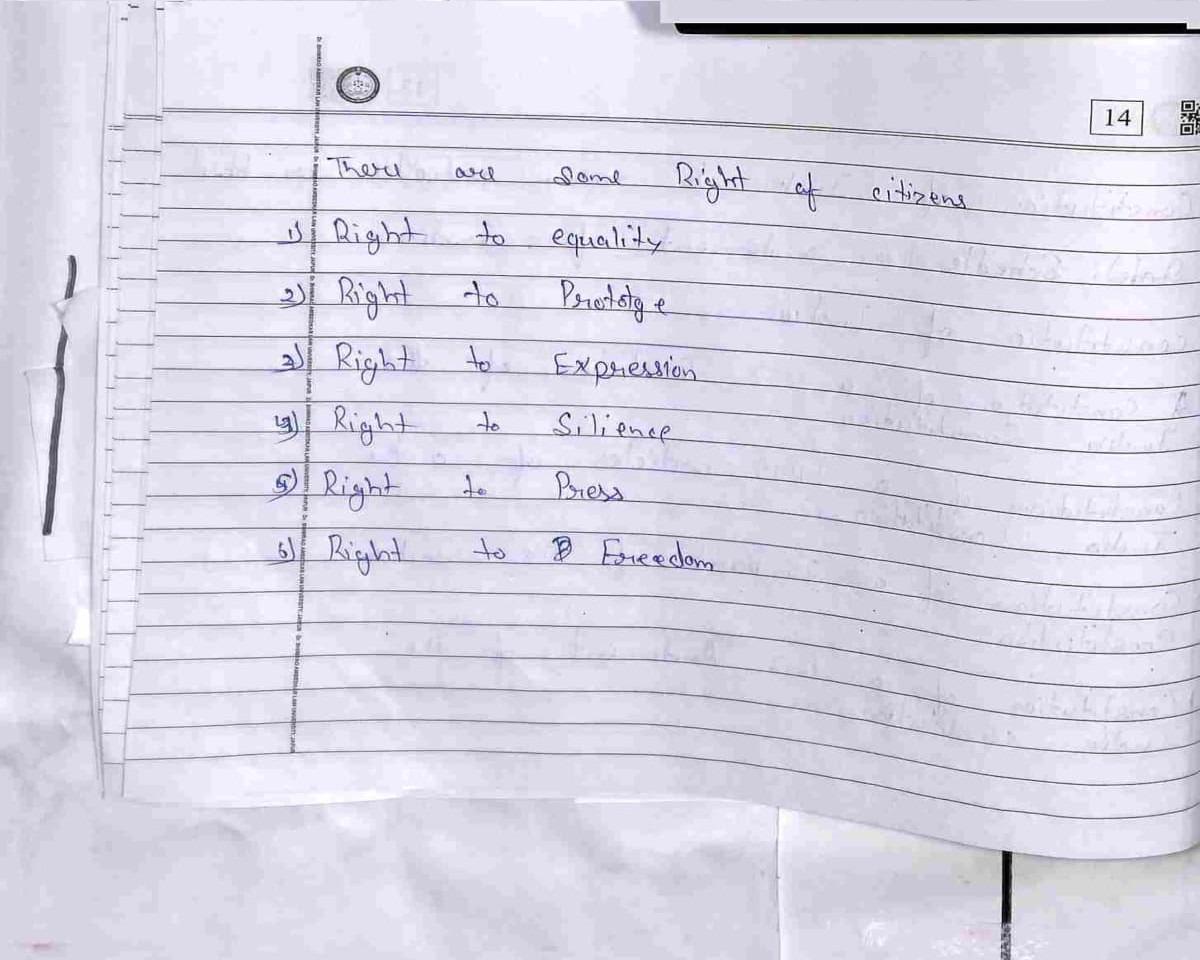 14
There are some Right of citizens
1) Right to equality
2) Right to Prototge
3) Right to Expression
4) Right to Silience
5) Right to Press
6) Right to Freedom
Dr. BHIMRAO AMBEDKAR LAW UNIVERSITY, JAIPUR